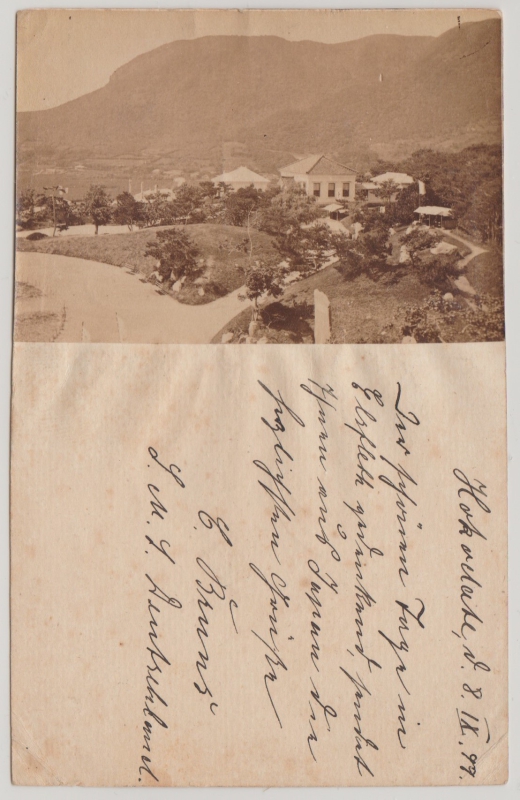 Hokodate, d. 8. IX. 99.
Der schönen Tage in
Elsfleth gedenkend, sendet
Ihnen aus Japan die
herzlichsten Grüße
C. Bruns
S. M. S. Deutschland.